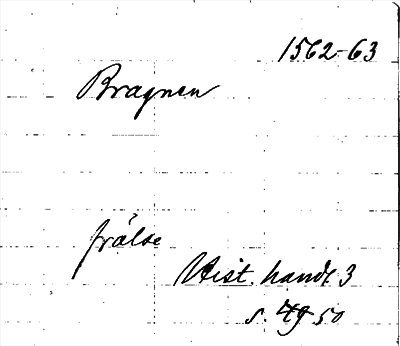 1562-63
Bragnen
frälse
Hist. handl 3
s. 49 50